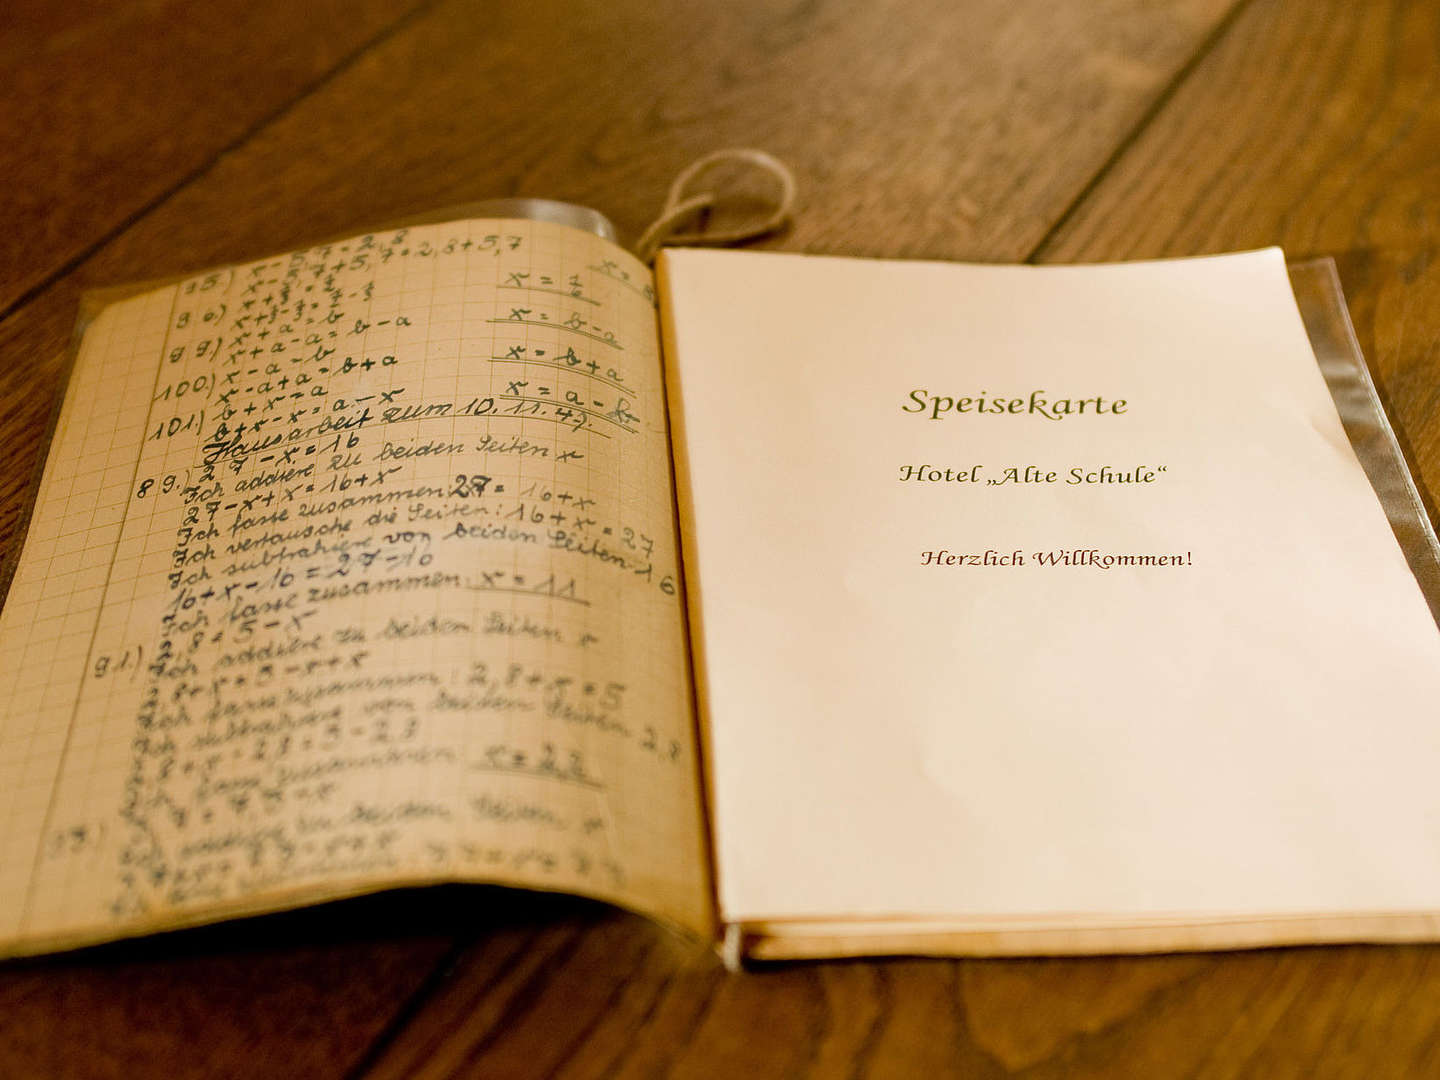 95.) x - 5,7 = 2,8
x - 5,7 + 5,7 = 2,8 + 5,7
x = 8
96.)
x = 1/6
99.) x + a = b
x + a - a = b - a
x = b - a
100.) x - a = b
x - a + a = b + a
x = b + a
101.) b + x = a
b + x - x = a - x
x = a - b
Hausarbeit zum 10. 11. 47.
89.) 27 - x = 16
Ich addiere zu beiden Seiten x
27 - x + x = 16 + x
Ich fasse zusammen: 27 = 16 + x
Ich vertausche die Seiten: 16 + x = 27
Ich subtrahiere von beiden Seiten 16
16 + x - 16 = 27 - 16
Ich fasse zusammen: x = 11
91.) 2,8 = 5 - x
Ich addiere zu beiden Seiten x
2,8 + x = 5 - x + x
Ich fasse zusammen: 2,8 + x = 5
Ich subtrahiere von beiden Seiten 2,8
2,8 + x - 2,8 = 5 - 2,8
Ich fasse zusammen x = 2,2
Ich addiere zu beiden Seiten x
Speisekarte
Hotel „Alte Schule“
Herzlich Willkommen!